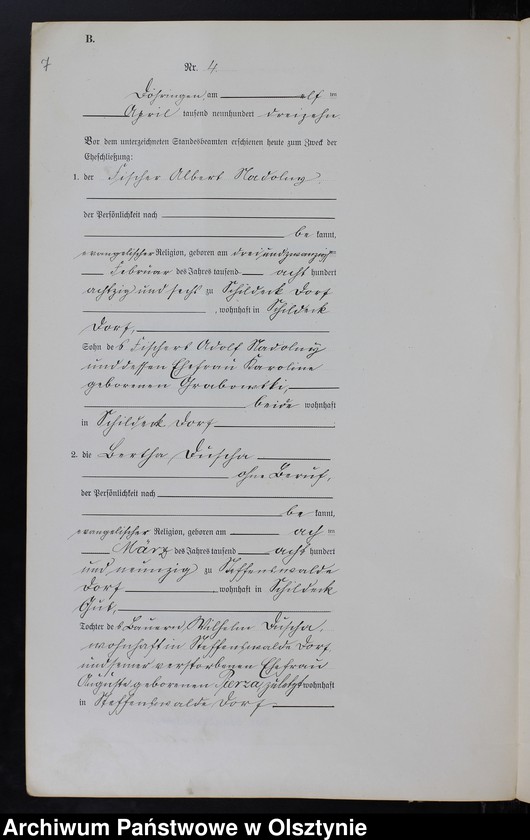 B.
7
Nr. 4.
Döhringen, am elf ten
April tausend neunhundert dreizehn
Vor dem unterzeichneten Standesbeamten erschienen heute zum Zweck der
Eheschließung:
1. der Fischer Albert Nadolny
der Persönlichkeit nach
be kannt,
evangelischer Religion, geboren am dreiundzwanzigsten
Februar des Jahres tausend acht hundert
achtzig und sechs zu Schildeck Dorf
, wohnhaft in Schildeck
Dorf,
Sohn des Fischers Adolf Nadolny
und dessen Ehefrau Karoline
geborenen Grabowski,
beide wohnhaft
in Schildeck Dorf
2. die Bertha Duscha
ohne Beruf,
der Persönlichkeit nach
be kannt,
evangelischer Religion, geboren am ach ten
März des Jahres tausend acht hundert
und neunzig zu Steffenswalde
Dorf, wohnhaft in Schildeck
Gut,
Tochter des Bauern Wilhelm Duscha,
wohnhaft in Steffenswalde Dorf
und seiner verstorbenen Ehefrau
Auguste geborenen Perza, zuletzt wohnhaft
in Steffenswalde Dorf
Archiwum Państwowe w Olsztynie